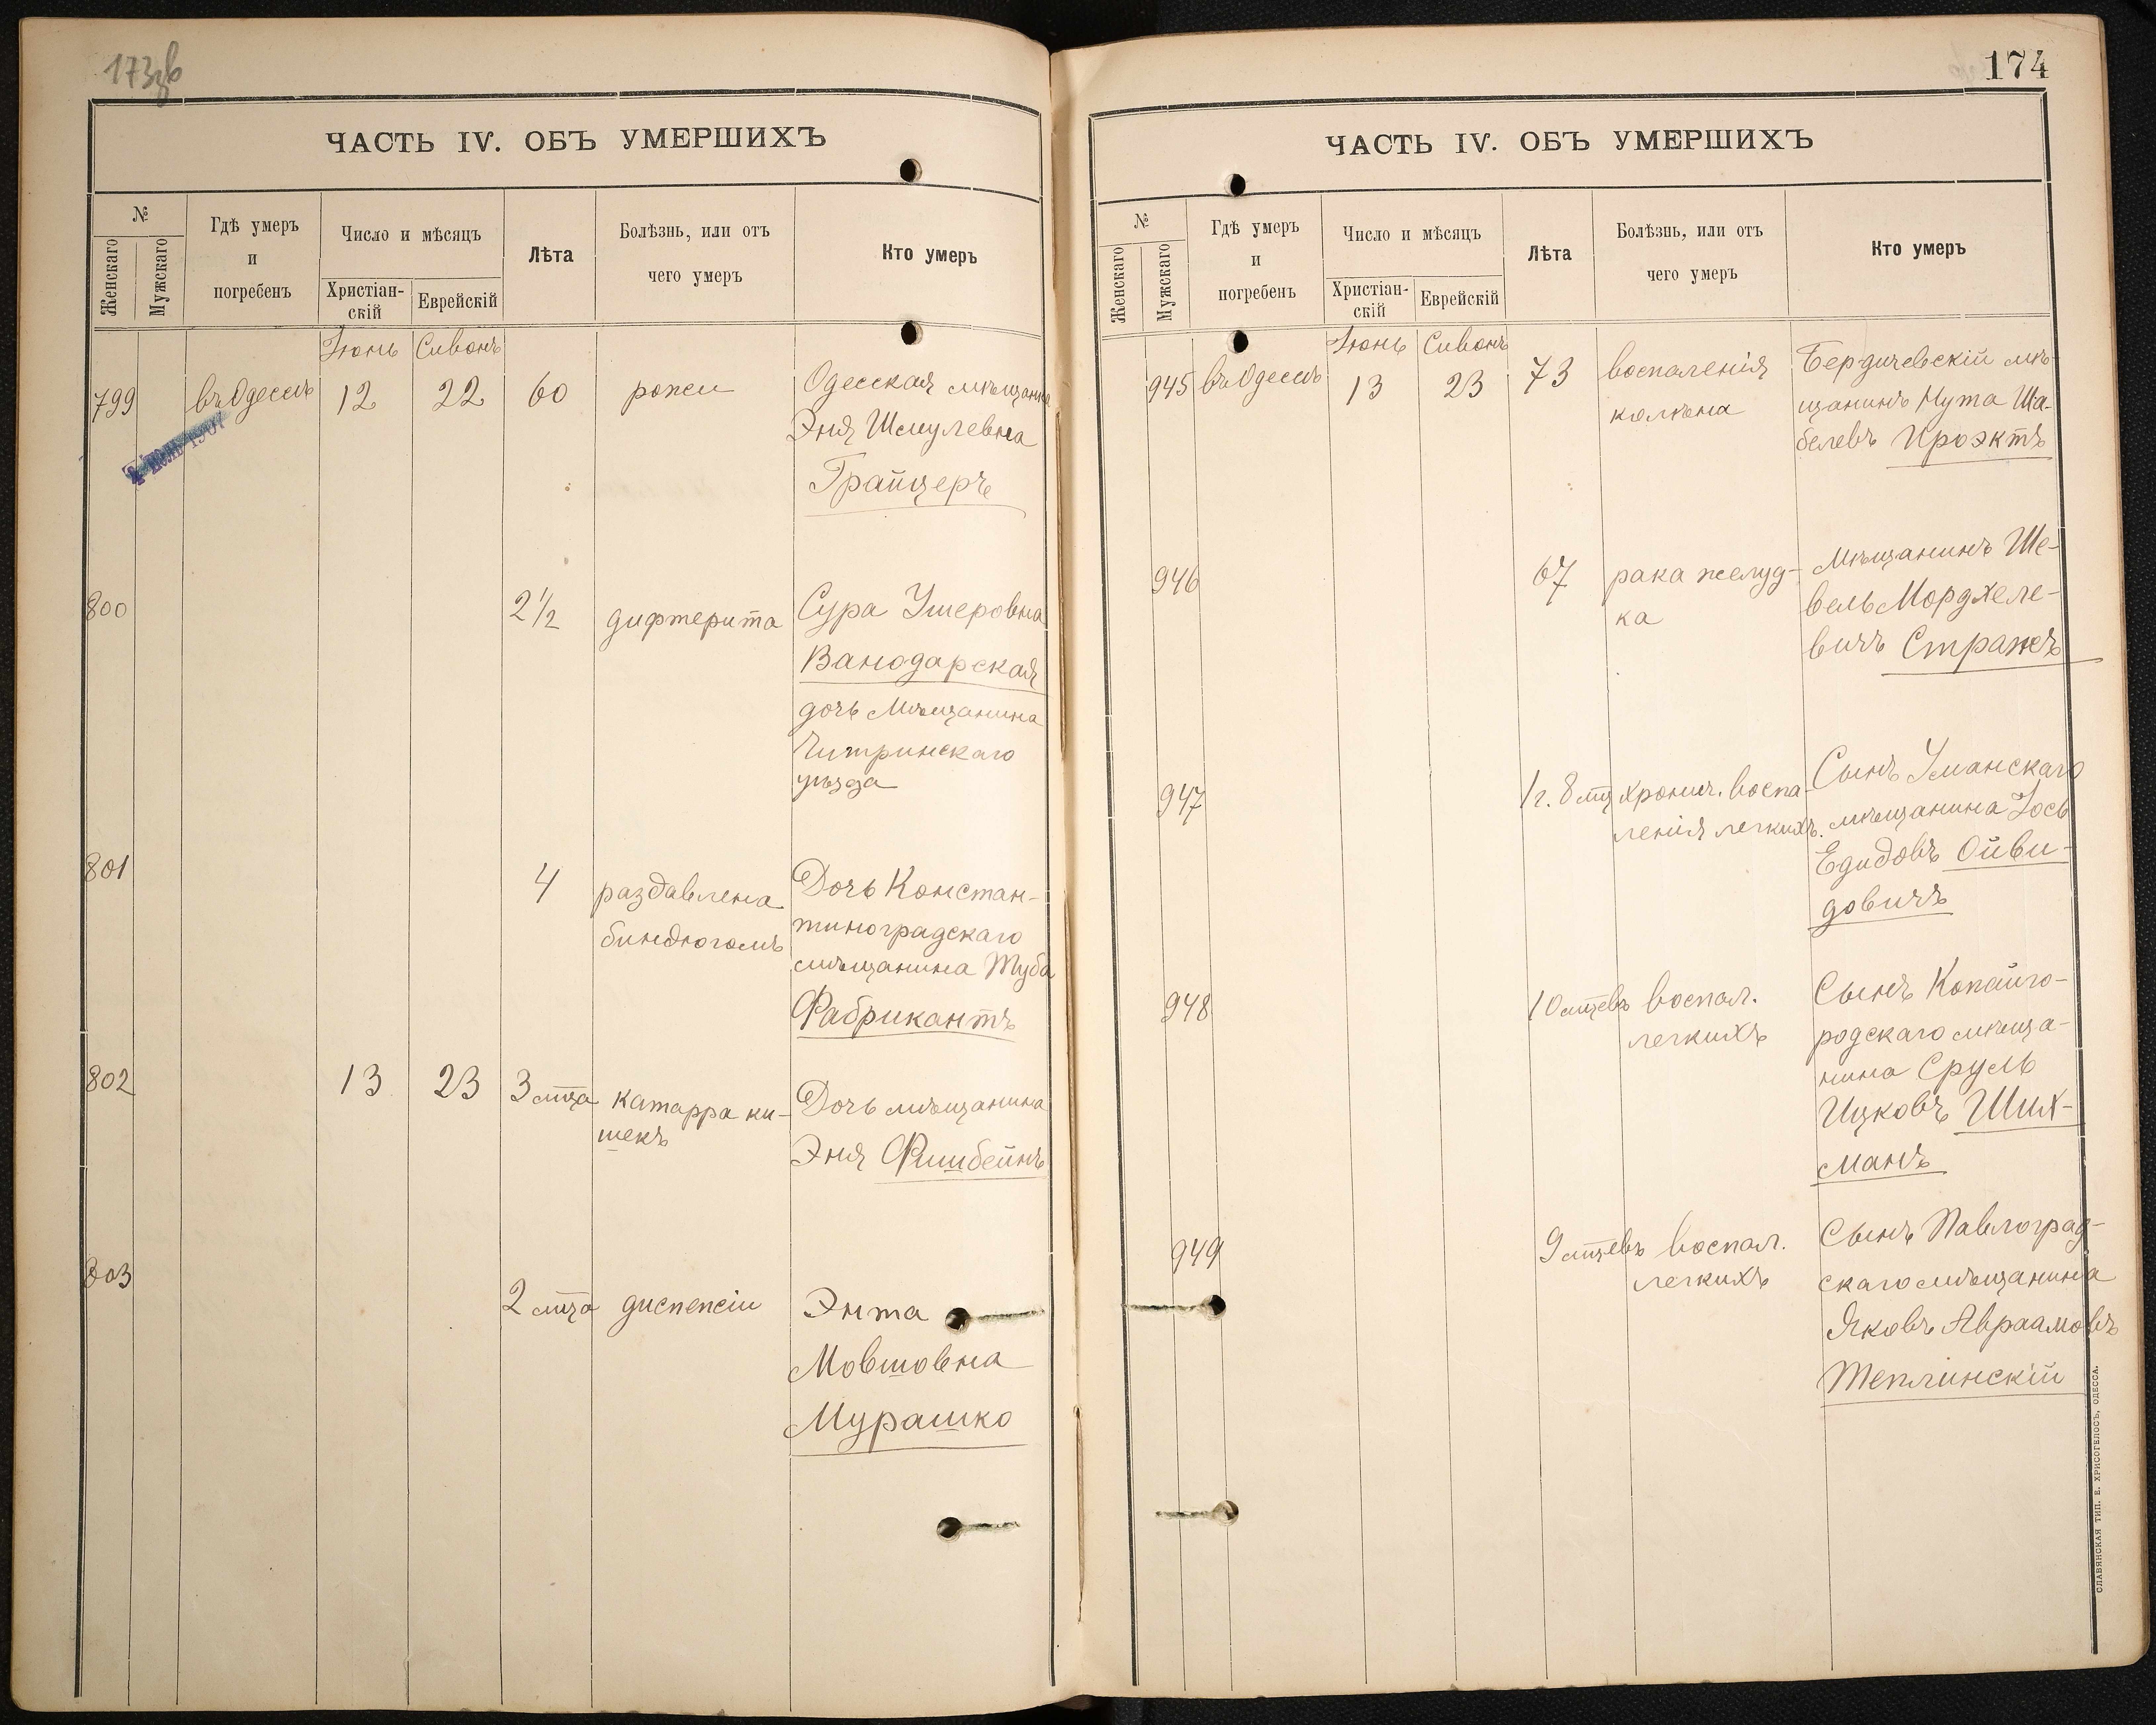 173об
ЧАСТЬ IV. ОБЪ УМЕРШИХЪ
№
Женскаго
Мужскаго
Гдѣ умеръ
и
погребенъ
Число и мѣсяцъ
Христіан-
скій
Еврейскій
Лѣта
Болѣзнь, или отъ
чего умеръ
Кто умеръ
Іюнь Сивонъ
799 въ Одессѣ 12 22 60 рожи Одесская мѣщанка
Эня Шмулевна
Грайцеръ
800 2½ дифтерита Сура Ушеровна
Ванодарская
дочь мѣщанина
Чигринскаго
уѣзда
801 4 раздавлена Дочь Констан-
биндюгомъ тиноградскаго
мѣщанина Туба
Фабрикантъ
802 13 23 3 мца катарра ки- Дочь мѣщанина
шекъ Эня Фишбейнъ
803 2 мца диспепсіи Энта
Мовшовна
Мурашко
174
ЧАСТЬ IV. ОБЪ УМЕРШИХЪ
№
Женскаго
Мужскаго
Гдѣ умеръ
и
погребенъ
Число и мѣсяцъ
Христіан-
скій
Еврейскій
Лѣта
Болѣзнь, или отъ
чего умеръ
Кто умеръ
Іюнь Сивонъ
945 въ Одессѣ 13 23 73 воспаленія Бердичевскій мѣ-
колѣна щанинъ Нута Ша-
белевъ Проэктъ
946 67 рака желуд- Мѣщанинъ Ше-
ка вель Мордхеле-
вичъ Стражъ
947 1 г. 8 мц хронич. воспа- Сынъ Уманскаго
ленія легкихъ. мѣщанина Іось
Едидовъ Ойви-
довичъ
948 10 мцевъ воспал. Сынъ Копайго-
легкихъ родскаго мѣща-
нина Сруль
Ицковъ Ших-
манъ
949 9 мцевъ воспал. Сынъ Павлоград-
легкихъ скаго мѣщанина
Яковъ Авраамовъ
Теплинскій
СЛАВЯНСКАЯ ТИП. Е. ХРИСОГЕЛОСЪ, ОДЕССА.